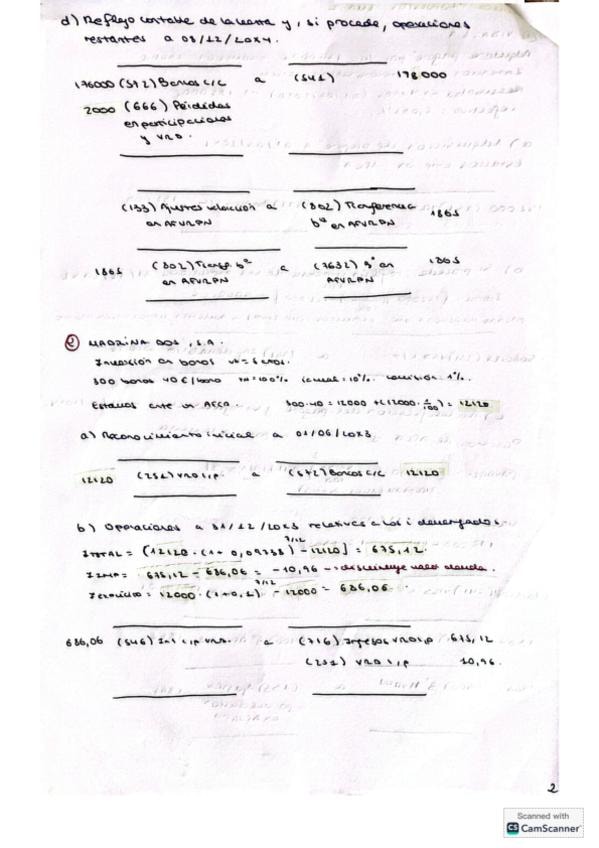 d) Reflejo contable de la venta y, si procede, operaciones
restantes a 08/12/20X4.
176000 (572) Bancos c/c a (541) 178000
2000 (666) Pérdidas
en participaciones
y VRD.
(133) Ajustes valoración a (802) Transferencia 1865
en AFVRPN bº en AFVRPN
1865 (802) Transf bº a (7632) Bº en 1865
en AFVRPN AFVRPN
② MADRINA DOS, S.A.
Inversión en bonos
300 bonos 40€/bono comisión 1%.
Estamos ante un AFCA. 300·40 = 12000 + (12000· 1/100) = 12120
a) Reconocimiento inicial a 01/06/20X3
12120 (251) VRD l/p a (572) Bancos c/c 12120
b) Operaciones a 31/12/20X3 relativas a los i devengados.
ITOTAL = [12120·(1+0,09738) 7/12 - 12120] = 675,12.
675,12 - 686,06 = -10,96 → disminuye valor deuda.
12000·(1+0,1) 7/12 - 12000 = 686,06.
686,06 (546) Int c/p VRD. a (761) Ingresos VRD l/p 675,12
(251) VRD l/p 10,96.
2
Scanned with
CS CamScanner